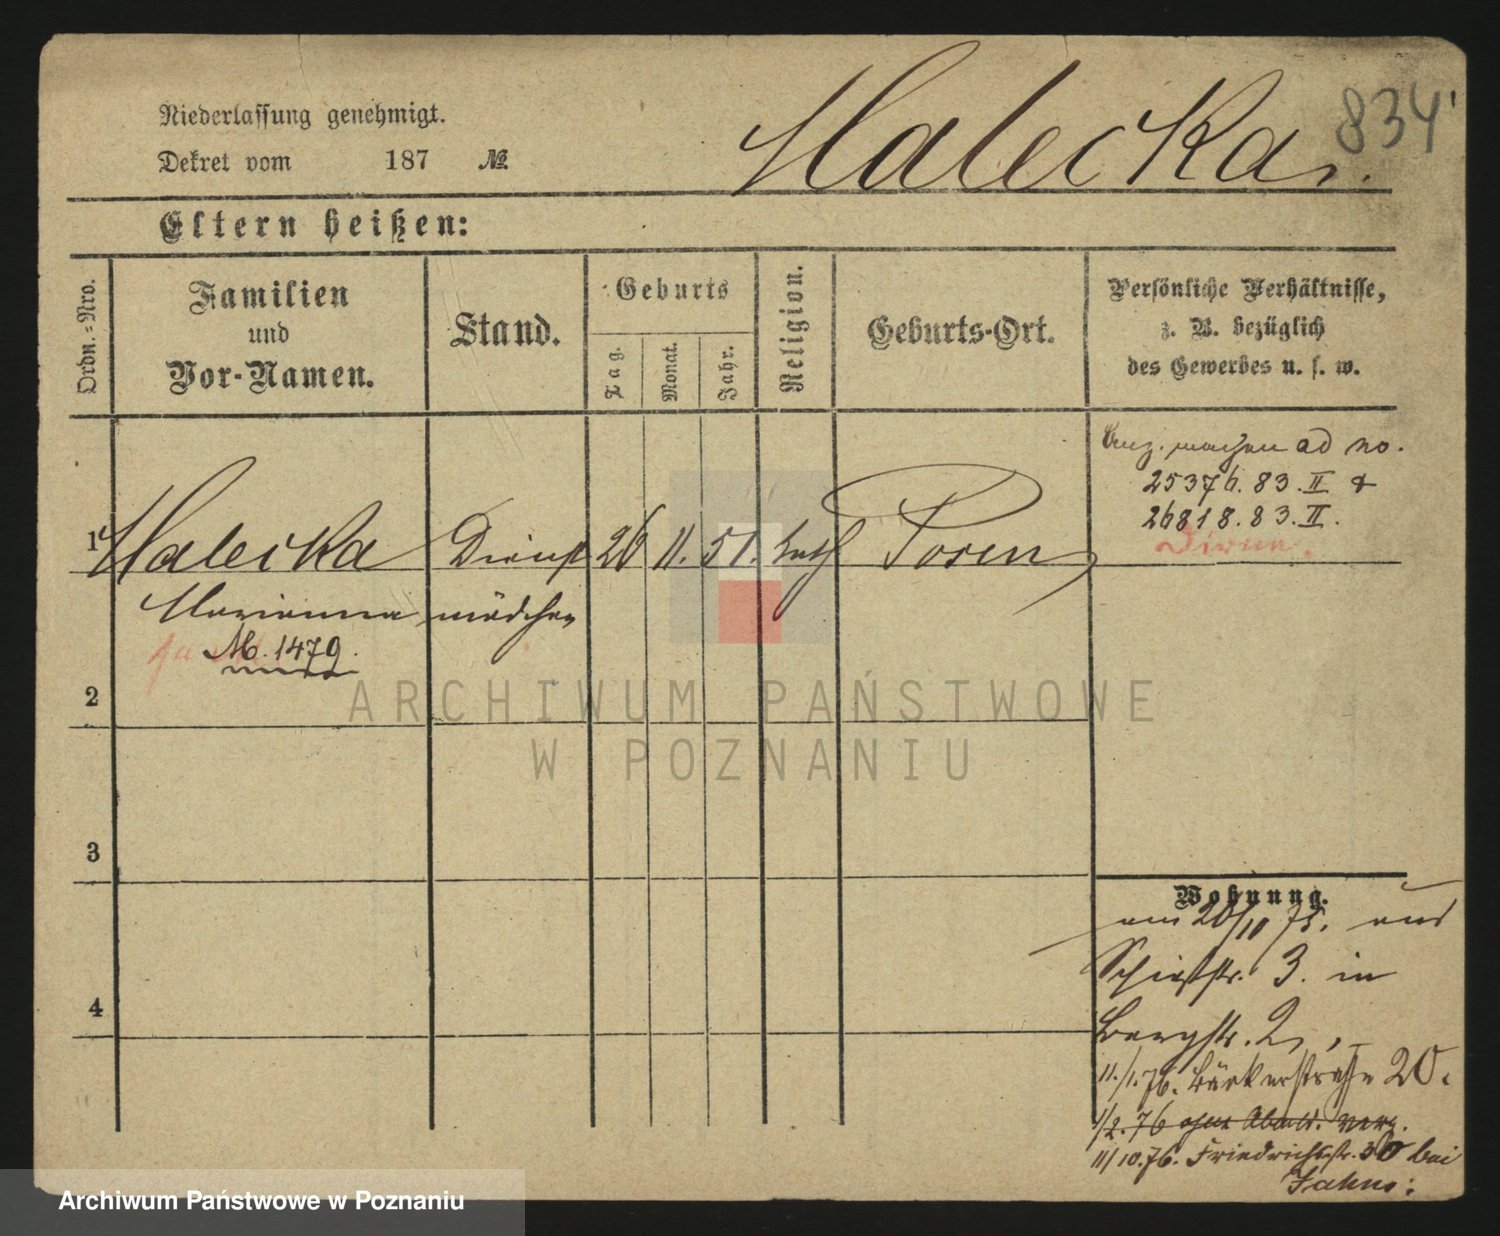 834
Niederlassung genehmigt.
Dekret vom 187 №
Halecka
Eltern heißen:
Ordn.-Nro.
Familien
und
Vor-Namen.
Stand.
Geburts
Tag.
Monat.
Jahr.
Religion.
Geburts-Ort.
Persönliche Verhältnisse,
z. B. bezüglich
des Gewerbes u. s. w.
1 Halecka Dienst 26 11. 51. kath Posen
Marianna mädchen
M. 1479.
ad no.
25376. 83. II &
26818. 83. II.
Dirne.
2
3
4
Wohnung.
am 20/10 75. aus
Schießstr. 3. in
Bergstr. 2
11./1.76. Bäckerstraße 20.
1/2.76 ohne Abmld. verz.
11/10.76. Friedrichsstr. 30 bei
Jahns.
ARCHIWUM PAŃSTWOWE
W POZNANIU
Archiwum Państwowe w Poznaniu